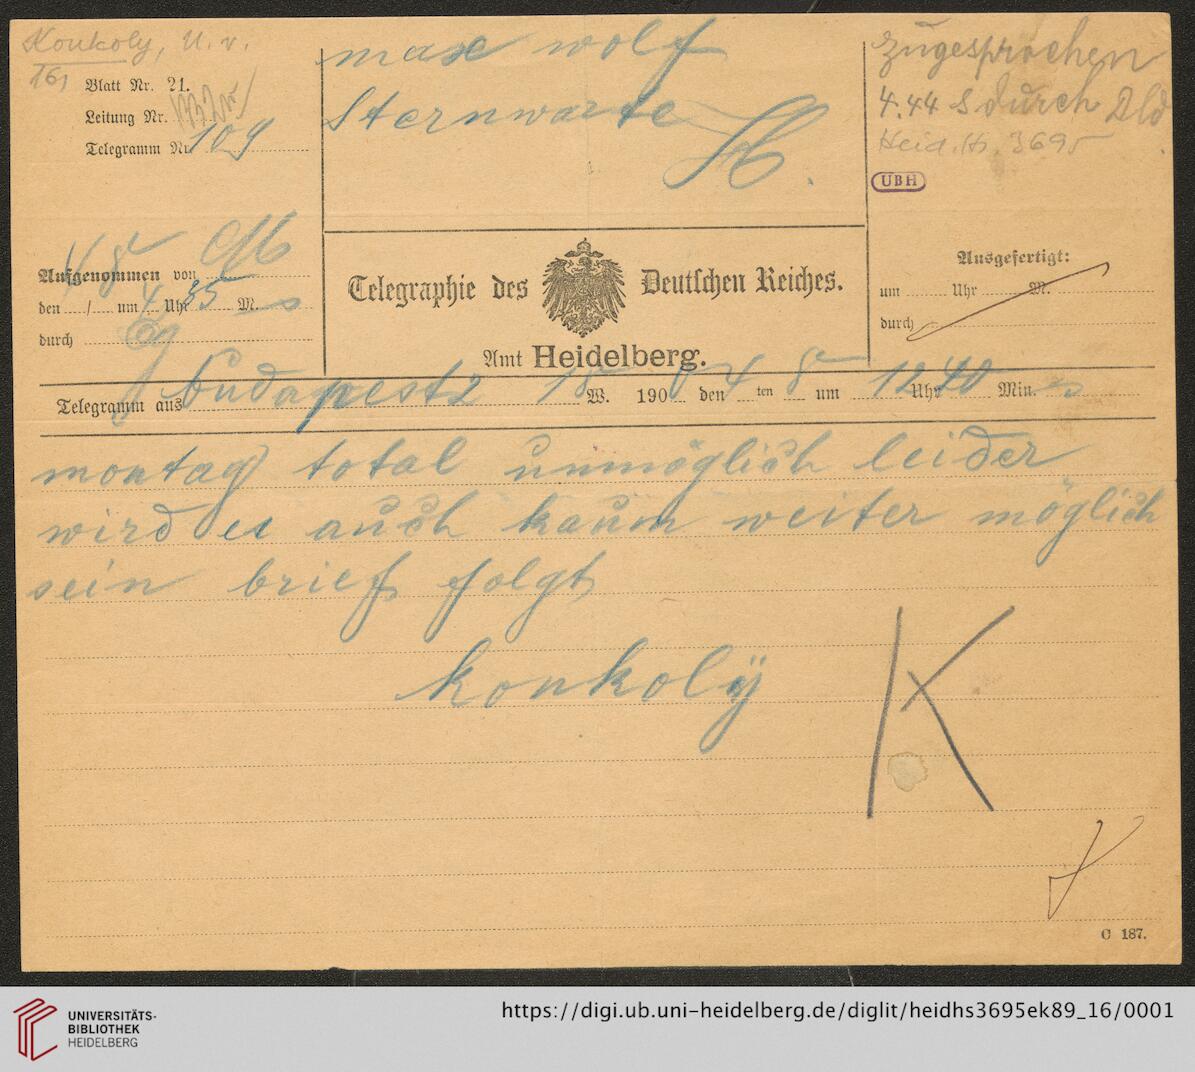 Konkoly, U. v.
16,
Blatt Nr. 21.
Leitung Nr.
Telegramm Nr. 109
max wolf
Sternwarte
H.
zugesprochen
4.44 S durch Dld
Heid. Hs. 3695
UBH
Aufgenommen von
den 4/8 um 4 Uhr 35 M. s
durch
Telegraphie des Deutschen Reiches.
Amt Heidelberg.
Ausgefertigt:
um Uhr M.
durch
Telegramm aus budapest 2 15 W. 190 den 4 ten 8 um 12 Uhr 40 Min. s
montag total unmöglich leider
wird es auch kaum weiter möglich
sein brief folgt
konkolÿ
K
C 187.
UNIVERSITÄTS-
BIBLIOTHEK
HEIDELBERG
https://digi.ub.uni-heidelberg.de/diglit/heidhs3695ek89_16/0001